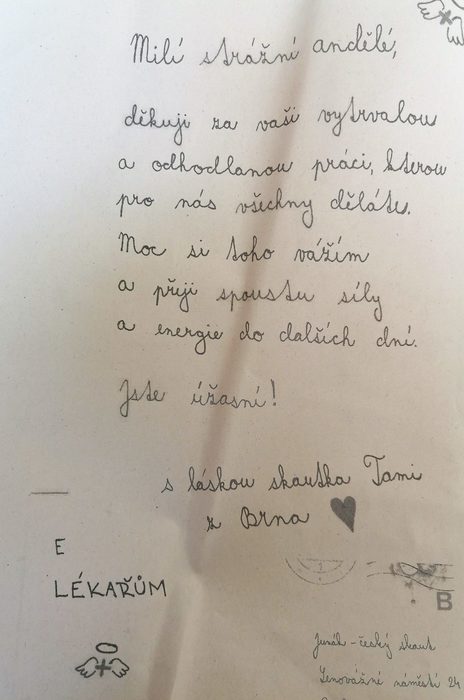 Milí strážní andělé,
děkuji za vaši vytrvalou
a odhodlanou práci, kterou
pro nás všechny děláte.
Moc si toho vážím
a přiji spoustu síly
a energie do dalších dní.
Jste úžasní!
s láskou skautka Tami
z Brna
E
LÉKAŘŮM
B
Junák – český skaut
Senovážné náměstí 24